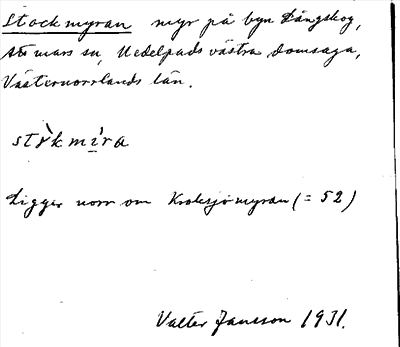 Stockmyran myr på byn Långskog,
Stu mars sn, Medelpads västra domsaga,
Västernorrlands län.
stòkmi̱ra
Ligger norr om Kroksjömyran (= 52)
Valter Jansson 1931.